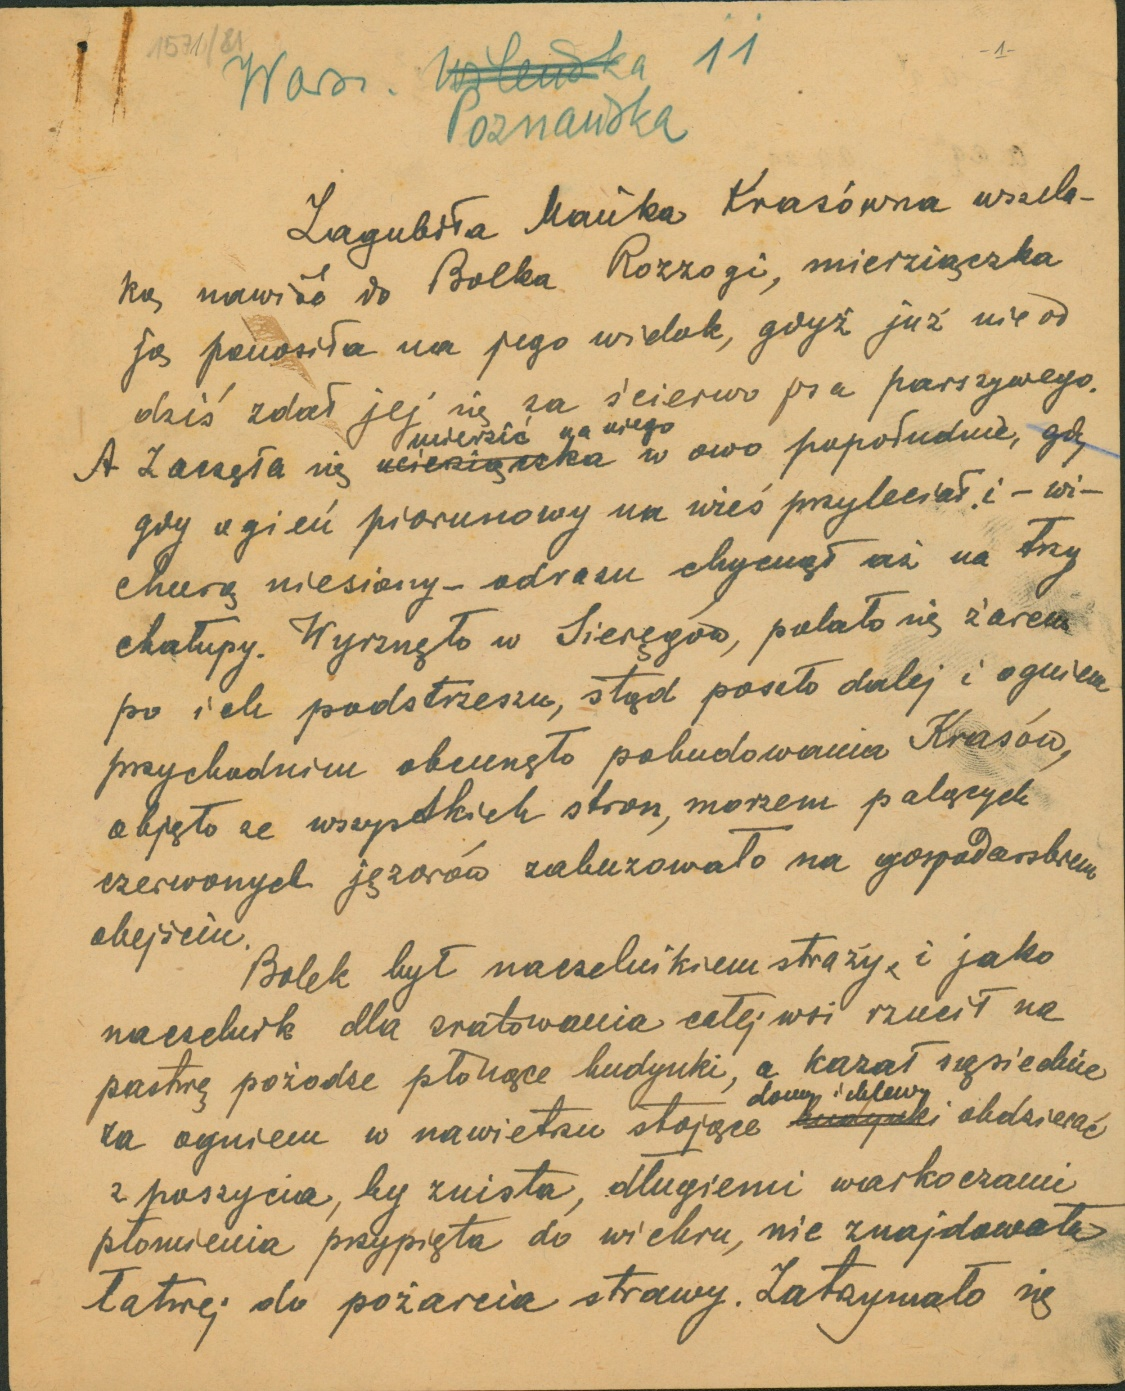 1571/81
-1-
Warsz. Wileńska 11
Poznańska
Zagubiła Mańka Krasówna wszela-
ką nawiść do Bolka Rozzogi, mierziączka
ją ponosiła na jego widok, gdyż już nie od
dziś zdał jej się za ścierwo psa parszywego.
mierzić na niego
A Zaczęła się mierziączka w owo popołudnie, gdy
gdy ogień piorunowy na wieś przyleciał i – wi-
churą niesiony – odrazu chycnął aż na trzy
chałupy. Wyrznęło w Sieręgów, polało się żarem
po ich podstrzeszu, stąd poszło dalej i ogniem
przychodnim obcunęło pobudowania Krasów,
objęło ze wszystkich stron, morzem palących
czerwonych jęzorów zabuzowało na gospodarskiem
obejściu.
Bolek był naczelnikiem straży, i jako
naczelnik dla zratowania całej wsi rzucił na
pastwę pożodze płonące budynki, a kazał sąsiednie
domy i chlewy
za ogniem w nawietrzu stojące budynki obdzierać
z poszycia, by zniszła, długiemi warkoczami
płomienia przypięta do wichru, nie znajdowała
łatwej do pożarcia strawy. Zatrzymało się